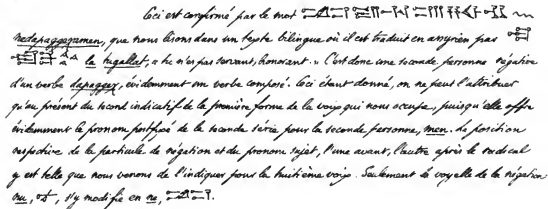 Ceci est confirmé par le mot
nedapaggagamen, que nous lisons dans un texte bilingue où il est traduit en assyrien par
la tugallat, « tu n'es pas servant, honorant. » C'est donc une seconde personne négative
d'un verbe dapaggag, évidemment un verbe composé. Ceci étant donné, on ne peut l'attribuer
qu'au présent du second indicatif de la première forme de la voix qui nous occupe, puisqu'elle offre
évidemment le pronom postfixé de la seconde série pour la seconde personne, men. La position
respective de la particule de négation et du pronom sujet, l'une avant, l'autre après le radical
y est telle que nous venons de l'indiquer pour la huitième voix. Seulement la voyelle de la négation
nu, s'y modifie en ne,